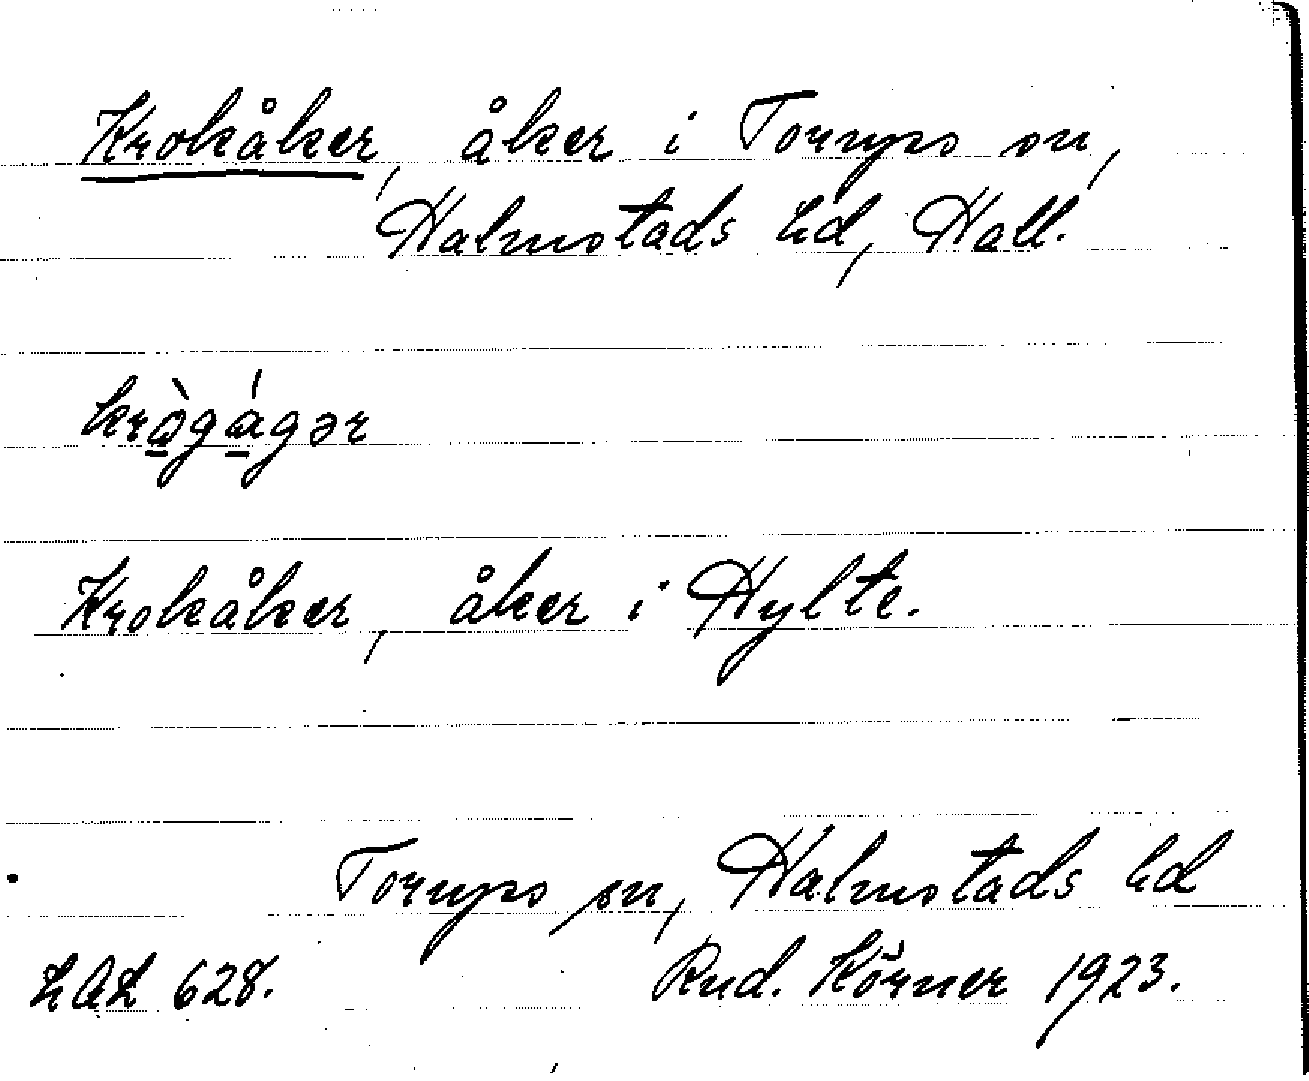 Krokåker, åker i Torups sn,
Halmstads hd, Hall.
kròg̀ágər
Krokåker, åker i Hylte.
Torups sn, Halmstads hd
LAL 628. Rud. Körner 1923.